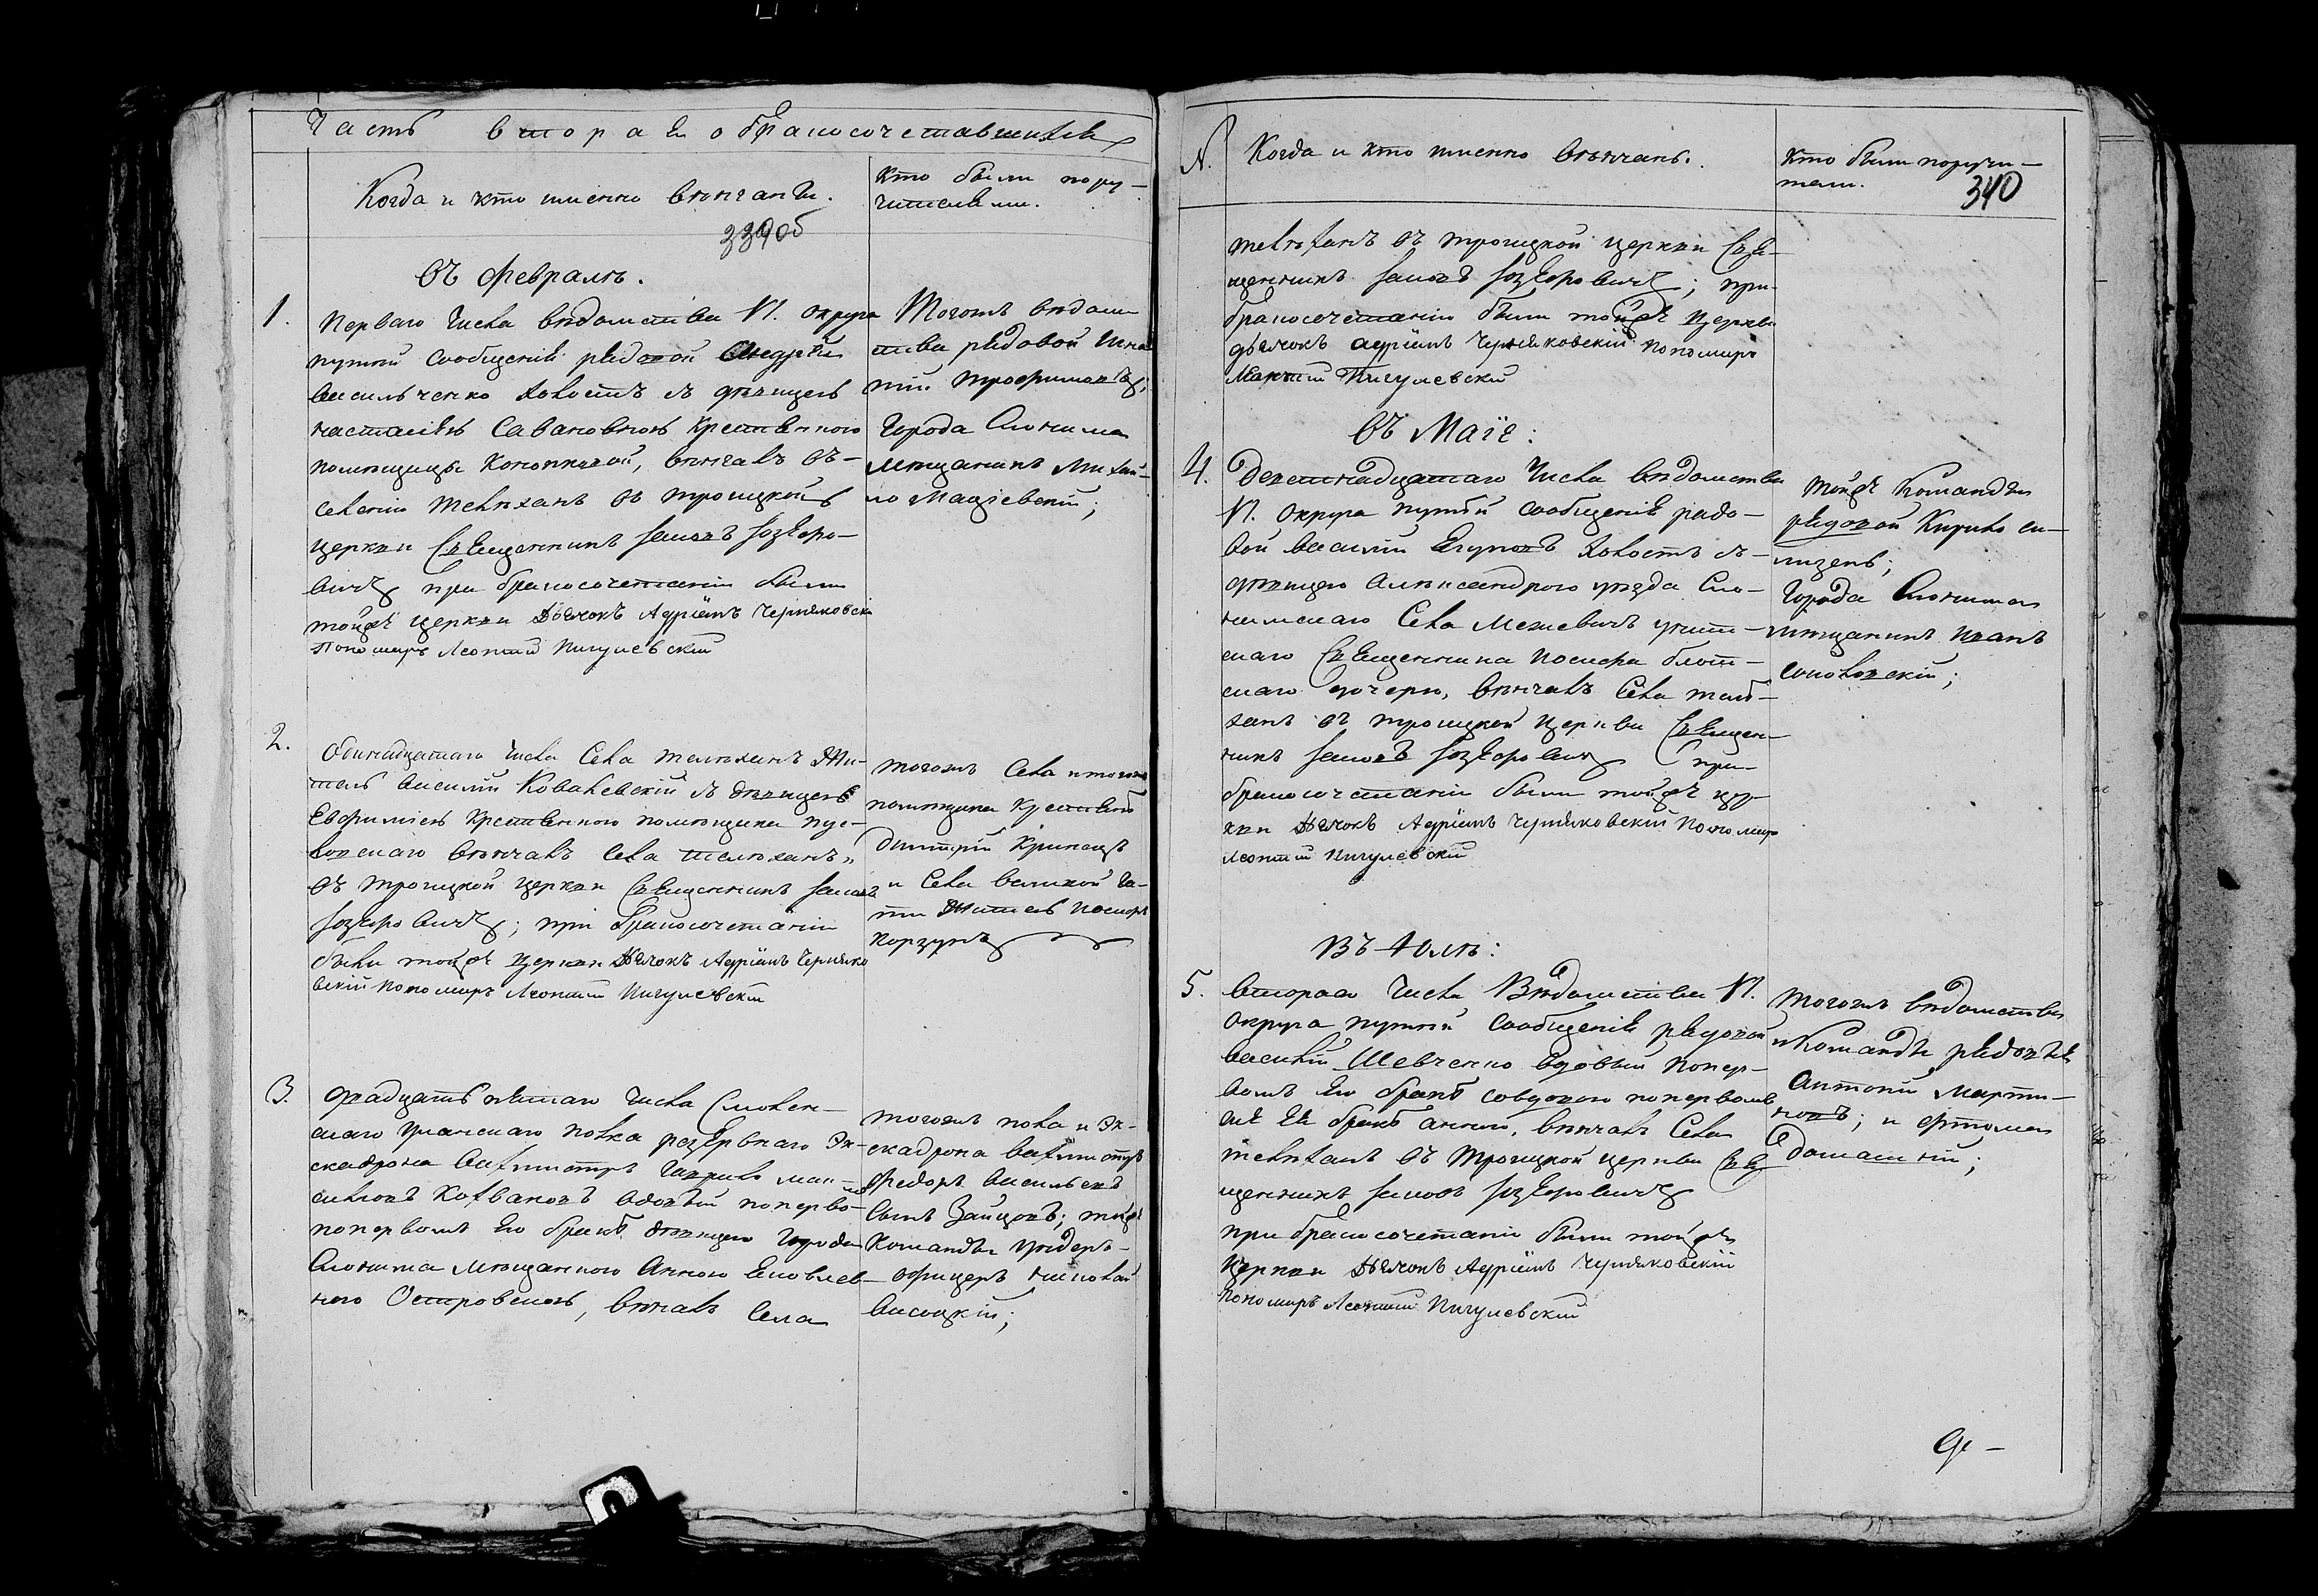 Часть вторая о бракосочетавшихся
Когда и кто именно вѣнчанъ.
Кто были пору-
чителями.
339об
Въ Февралѣ.
1.
Перваго числа вѣдомства VI. округа
путей сообщенія рядовой Андрей
Васильченко холостъ съ дѣвицею
Настасіею Савановною крестьянкою
помѣщицы, вѣнчалъ въ
селеніи Телѣханъ въ троицкой
церкви Священникъ Іаковъ
при бракосочетаніи были
тойже церкви Дьячокъ Адріанъ Черняковскій
Пономарь Леонтій Пигулевскій
Тогожъ вѣдом-
ства рядовой Игна-
тій Трофимовъ;
Города Слонима
мѣщанинъ Михай-
ло Мацiевскій;
2.
Одинадцатаго числа Села Телѣханъ Жи-
тель Василій Ковалевскій съ дѣвицею
Евфиміею крестьянкою помѣщика Пус-
ловскаго вѣнчалъ Села Телѣханъ
въ троицкой церкви Священникъ Іаковъ
; при бракосочетаніи
были тойже церкви Дьячокъ Адріанъ Черняко
вскій Пономарь Леонтій Пигулевскій
тогожъ Села и тогожъ
помѣщика крестьянинъ
Димитрій
и Села Великой Га-
ти Житель Іосифъ
Корзунъ
3.
Двадцать пятаго числа Смолен-
скаго уланскаго полка резервнаго Эс-
кадрона Вахмистръ Гаврило
вдовый по перво-
по первомъ его бракѣ дѣвицею Города
Слонима мѣщанкою Анною Яковлев-
ною Островскою, вѣнчалъ Села
тогожъ полка и Эс-
кадрона Вахмистръ
Федоръ Васильевъ
сынъ Зайцовъ; тойже
Команды ундеръ-
офицеръ Николай
Висоцкій;
№.
Когда и кто именно вѣнчанъ.
Кто были поручи-
тели.
340
Телѣханъ въ троицкой церкви Свя-
щенникъ Іаковъ; при
бракосочетаніи были тойже церкви
дьячокъ Адріанъ Черняковскій пономарь
Пигулевскій
Въ Маіе:
4.
Девятнадцатаго числа вѣдомства
VI. округа путей сообщенія рядо-
вой Василій Егуновъ холостъ съ
дѣвицею Александрою уѣзда Сло-
нимскаго Села Межевичъ уніят-
скаго Священника Іосифа
дочерю, вѣнчалъ Села Телѣ-
ханъ въ троицкой церкви Священ-
никъ Іаковъ при
бракосочетаніи были тойже цер-
кви Дьячокъ Адріанъ Черняковскій Пономарь
Леонтій Пигулевскій
тойже Команды
рядовой Кирило
Города Слонима
мѣщанинъ Иванъ
Соколовскій;
Въ Юлѣ:
5.
Втораго числа Вѣдомства VI.
округа путей сообщенія рядовой
Василій Шевченко вдовый по пер-
вомъ его бракѣ со вдовою по первомъ
ея бракѣ Анною, вѣнчалъ Села
Телѣханъ въ троицкой церкви Свя
щенникъ Іаковъ
при бракосочетаніи были тойже
церкви Дьячокъ Адріанъ Черняковскій
Пономарь Леонтій Пигулевскій
тогожъ вѣдомства
и Команды рядовые
Антоній Марти-
новъ; и Фтома
Домашній;